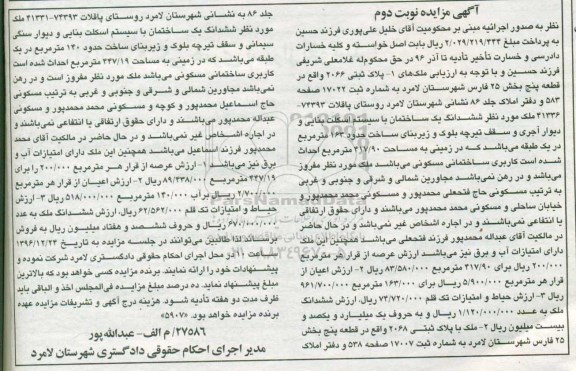 آگهی مزایده نوبت دوم
نظر به صدور اجرائیه مبنی بر محکومیت آقای خلیل علی‌پوری فرزند حسین
به پرداخت مبلغ ۲/۰۲۹/۲۱۹/۳۳۴ ریال بابت اصل خواسته و کلیه خسارات
دادرسی و خسارت تأخیر تأدیه تا آذر ۹۶ در حق محکوم‌له غلامعلی شریفی
فرزند حسین و با توجه به ارزیابی ملک‌های ۱- پلاک ثبتی ۲۰۶۶ واقع در
قطعه پنج بخش ۲۵ فارس شهرستان لامرد به شماره ثبت ۱۷۰۲۲ صفحه
۵۸۳ و دفتر املاک جلد ۸۶ نشانی شهرستان لامرد روستای پاقلات ۷۴۳۹۳-
۴۱۳۳۶ ملک مورد نظر ششدانگ یک ساختمان با سیستم اسکلت بنایی و
دیوار آجری و سقف تیرچه بلوک و زیربنای ساخت حدود ۱۶۳ مترمربع
در یک طبقه می‌باشد که در زمینی به مساحت ۳۱۷/۹۰ مترمربع احداث
شده است کاربری ساختمانی مسکونی می‌باشد ملک مورد نظر مفروز
می‌باشد و در رهن نمی‌باشد مجاورین شمالی و شرقی و جنوبی و غربی
به ترتیب مسکونی حاج فتحعلی محمدپور و مسکونی محمد محمدپور و
خیابان ساحلی و مسکونی محمد محمدپور می‌باشند و دارای حقوق ارتفاقی
یا انتفاعی نمی‌باشند و در اجاره اشخاص غیر نمی‌باشد و در حال حاضر
در مالکیت آقای عبداله محمدپور فرزند فتحعلی می‌باشد همچنین این ملک
دارای امتیازات آب و برق نیز می‌باشند ارزش عرصه از قرار هر مترمربع
۲۰۰/۰۰۰ ریال برای ۳۱۷/۹۰ مترمربع ۸۳/۵۸۰/۰۰۰ ریال ۲- ارزش اعیان از
قرار هر مترمربع ۵/۹۰۰/۰۰۰ ریال برای ۱۶۳/۰۰ مترمربع ۹۶۱/۷۰۰/۰۰۰
ریال ۳- ارزش حیاط و امتیازات تک قلم ۷۴/۷۲۰/۰۰۰ ریال، ارزش ششدانگ
ملک به عدد ۱/۱۲۰/۰۰۰/۰۰۰ ریال و به حروف یک میلیارد و یکصد و
بیست میلیون ریال ۲- ملک با پلاک ثبتی ۲۰۶۸ واقع در قطعه پنج بخش
۲۵ فارس شهرستان لامرد به شماره ثبت ۱۷۰۰۷ صفحه ۵۳۸ و دفتر املاک
جلد ۸۶ به نشانی شهرستان لامرد روستای پاقلات ۷۴۳۹۳-۴۱۳۳۱ ملک
مورد نظر ششدانگ یک ساختمان با سیستم اسکلت بنایی و دیوار سنگی
سیمانی و سقف تیرچه بلوک و زیربنای ساخت حدود ۱۴۰ مترمربع در یک
طبقه می‌باشد که در زمینی به مساحت ۴۴۷/۱۹ مترمربع احداث شده است
کاربری ساختمانی مسکونی می‌باشد ملک مورد نظر مفروز است و در رهن
نمی‌باشد مجاورین شمالی و شرقی و جنوبی و غربی به ترتیب مسکونی
حاج اسماعیل محمدپور و کوچه و مسکونی محمد محمدپور و مسکونی
عبداله محمدپور می‌باشند و دارای حقوق ارتفاقی یا انتفاعی نمی‌باشند و
در اجاره اشخاص غیر نمی‌باشد و در حال حاضر در مالکیت آقای محمد
محمدپور فرزند اسماعیل می‌باشد همچنین این ملک دارای امتیازات آب و
برق نیز می‌باشند ۱- ارزش عرصه از قرار هر مترمربع ۲۰۰/۰۰۰ ریال برای
۴۴۷/۱۹ مترمربع ۸۹/۴۳۸/۰۰۰ ریال ۲- ارزش اعیان از قرار هر مترمربع
۳/۷۰۰/۰۰۰ ریال برای ۱۴۰/۰۰۰ مترمربع ۵۱۸/۰۰۰/۰۰۰ ریال ۳- ارزش
حیاط و امتیازات تک قلم ۶۲/۵۶۲/۰۰۰ ریال، ارزش ششدانگ ملک به عدد
۶۷۰/۰۰۰/۰۰۰ ریال و حروف ششصد و هفتاد میلیون ریال به فروش
برساند لذا طالبین می‌توانند در جلسه مزایده به تاریخ ۱۳۹۶/۱۲/۲۳
در محل اجرای احکام حقوقی دادگستری لامرد شرکت نموده و
پیشنهادات خود را ارائه نمایند. برنده مزایده کسی خواهد بود که بالاترین
مبلغ پیشنهاد نماید. ده درصد مبلغ مزایده فی‌المجلس اخذ و الباقی باید
ظرف مدت دو هفته تأدیه شود. هزینه درج آگهی و تشریفات مزایده عهده
برنده مزایده خواهد بود. ۵۹۰۷
۲۷۵۸۶/ م الف- عبدالله‌پور
مدیر اجرای احکام حقوقی دادگستری شهرستان لامرد